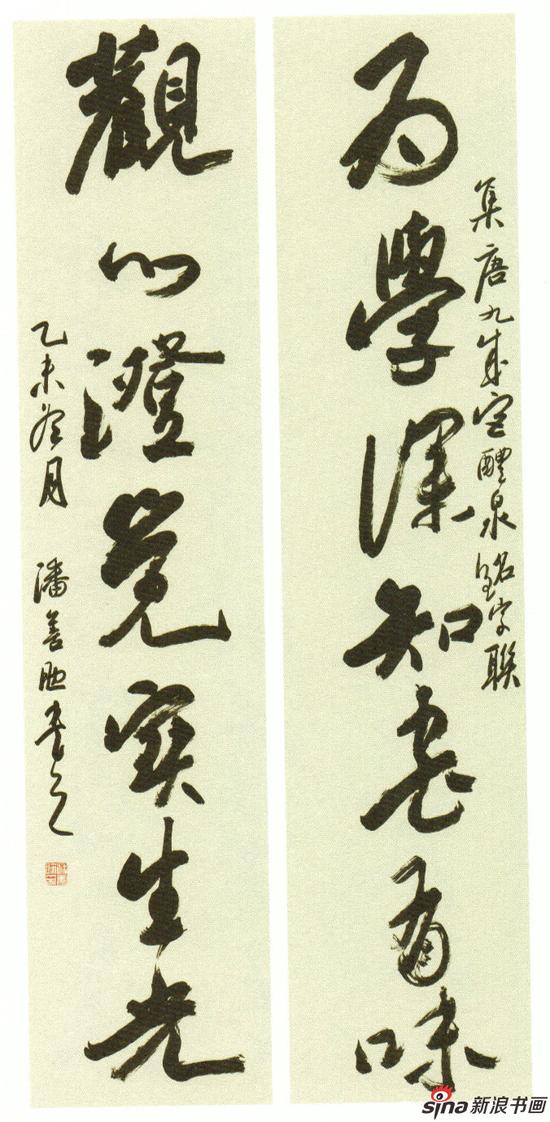 集唐九成宮醴泉銘字聯
為學深知書有味
觀心澄覺室生光
乙未冬月 潘善助書之
sina新浪书画